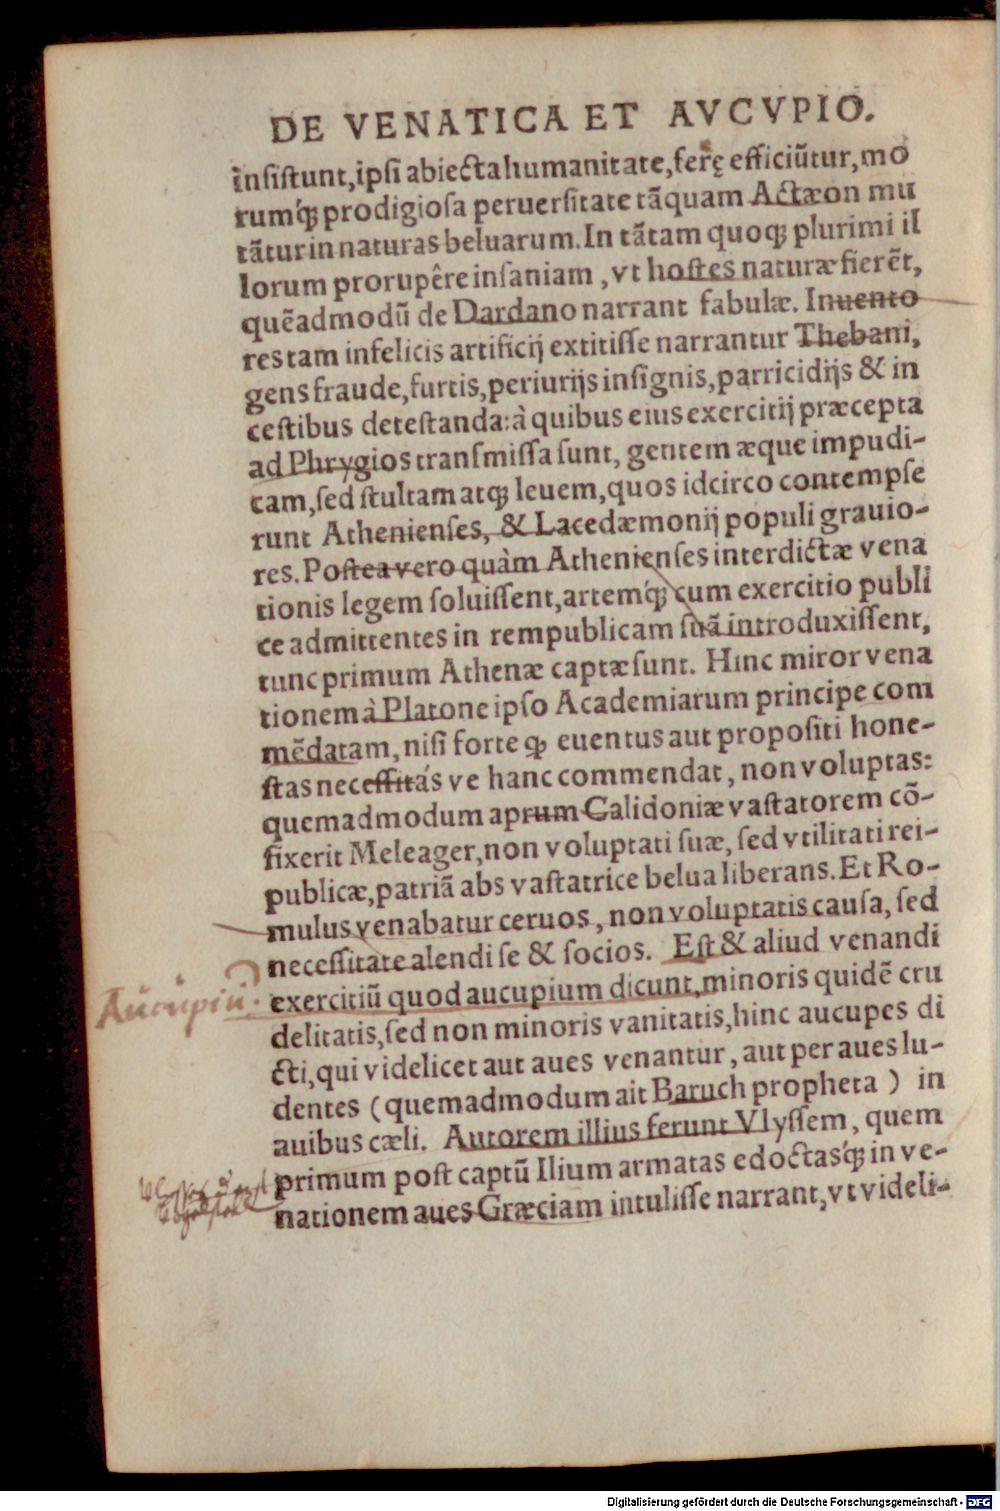 DE VENATICA ET AVCVPIO.
insistunt, ipsi abiecta humanitate, ferę efficiũtur, mo
rumq́; prodigiosa peruersitate tãquam Actæon mu
tãtur in naturas beluarum. In tãtam quoq; plurimi il
lorum prorupêre insaniam, vt hostes naturæ fierẽt,
quẽadmodũ de Dardano narrant fabulæ. Inuento
res tam infelicis artificij extitisse narrantur Thebani,
gens fraude, furtis, periurijs insignis, parricidijs & in
cestibus detestanda: à quibus eius exercitij præcepta
ad Phrygios transmissa sunt, gentem æque impudi-
cam, sed stultam atq; leuem, quos idcirco contempse
runt Athenienses, & Lacedæmonij populi grauio-
res. Postea vero quàm Athenienses interdictæ vena
tionis legem soluissent, artemq́; cum exercitio publi
ce admittentes in rempublicam suã introduxissent,
tunc primum Athenæ captæ sunt. Hinc miror vena
tionem à Platone ipso Academiarum principe com
mẽdatam, nisi forte q; euentus aut propositi hone-
stas necessitás ve hanc commendat, non voluptas:
quemadmodum aprum Calidoniæ vastatorem cõ-
fixerit Meleager, non voluptati suæ, sed vtilitati rei-
publicæ, patriã abs vastatrice belua liberans. Et Ro-
mulus venabatur ceruos, non voluptatis causa, sed
necessitate alendi se & socios. Est & aliud venandi
Aucupiũ. exercitiũ quod aucupium dicunt, minoris quidẽ cru
delitatis, sed non minoris vanitatis, hinc aucupes di
cti, qui videlicet aut aues venantur, aut per aues lu-
dentes (quemadmodum ait Baruch propheta) in
auibus cæli. Autorem illius ferunt Vlyssem, quem
primum post captũ Ilium armatas edoctasq́; in ve-
nationem aues Græciam intulisse narrant, vt videli-
Digitalisierung gefördert durch die Deutsche Forschungsgemeinschaft - DFG